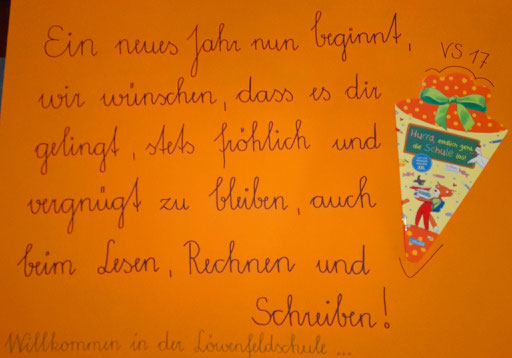 Ein neues Jahr nun beginnt,
VS 17
wir wünschen, dass es dir
gelingt, stets fröhlich und
Hurra, endlich geht
die Schule los!
vergnügt zu bleiben, auch
beim Lesen, Rechnen und
Schreiben!
Willkommen in der Löwenfeldschule ...